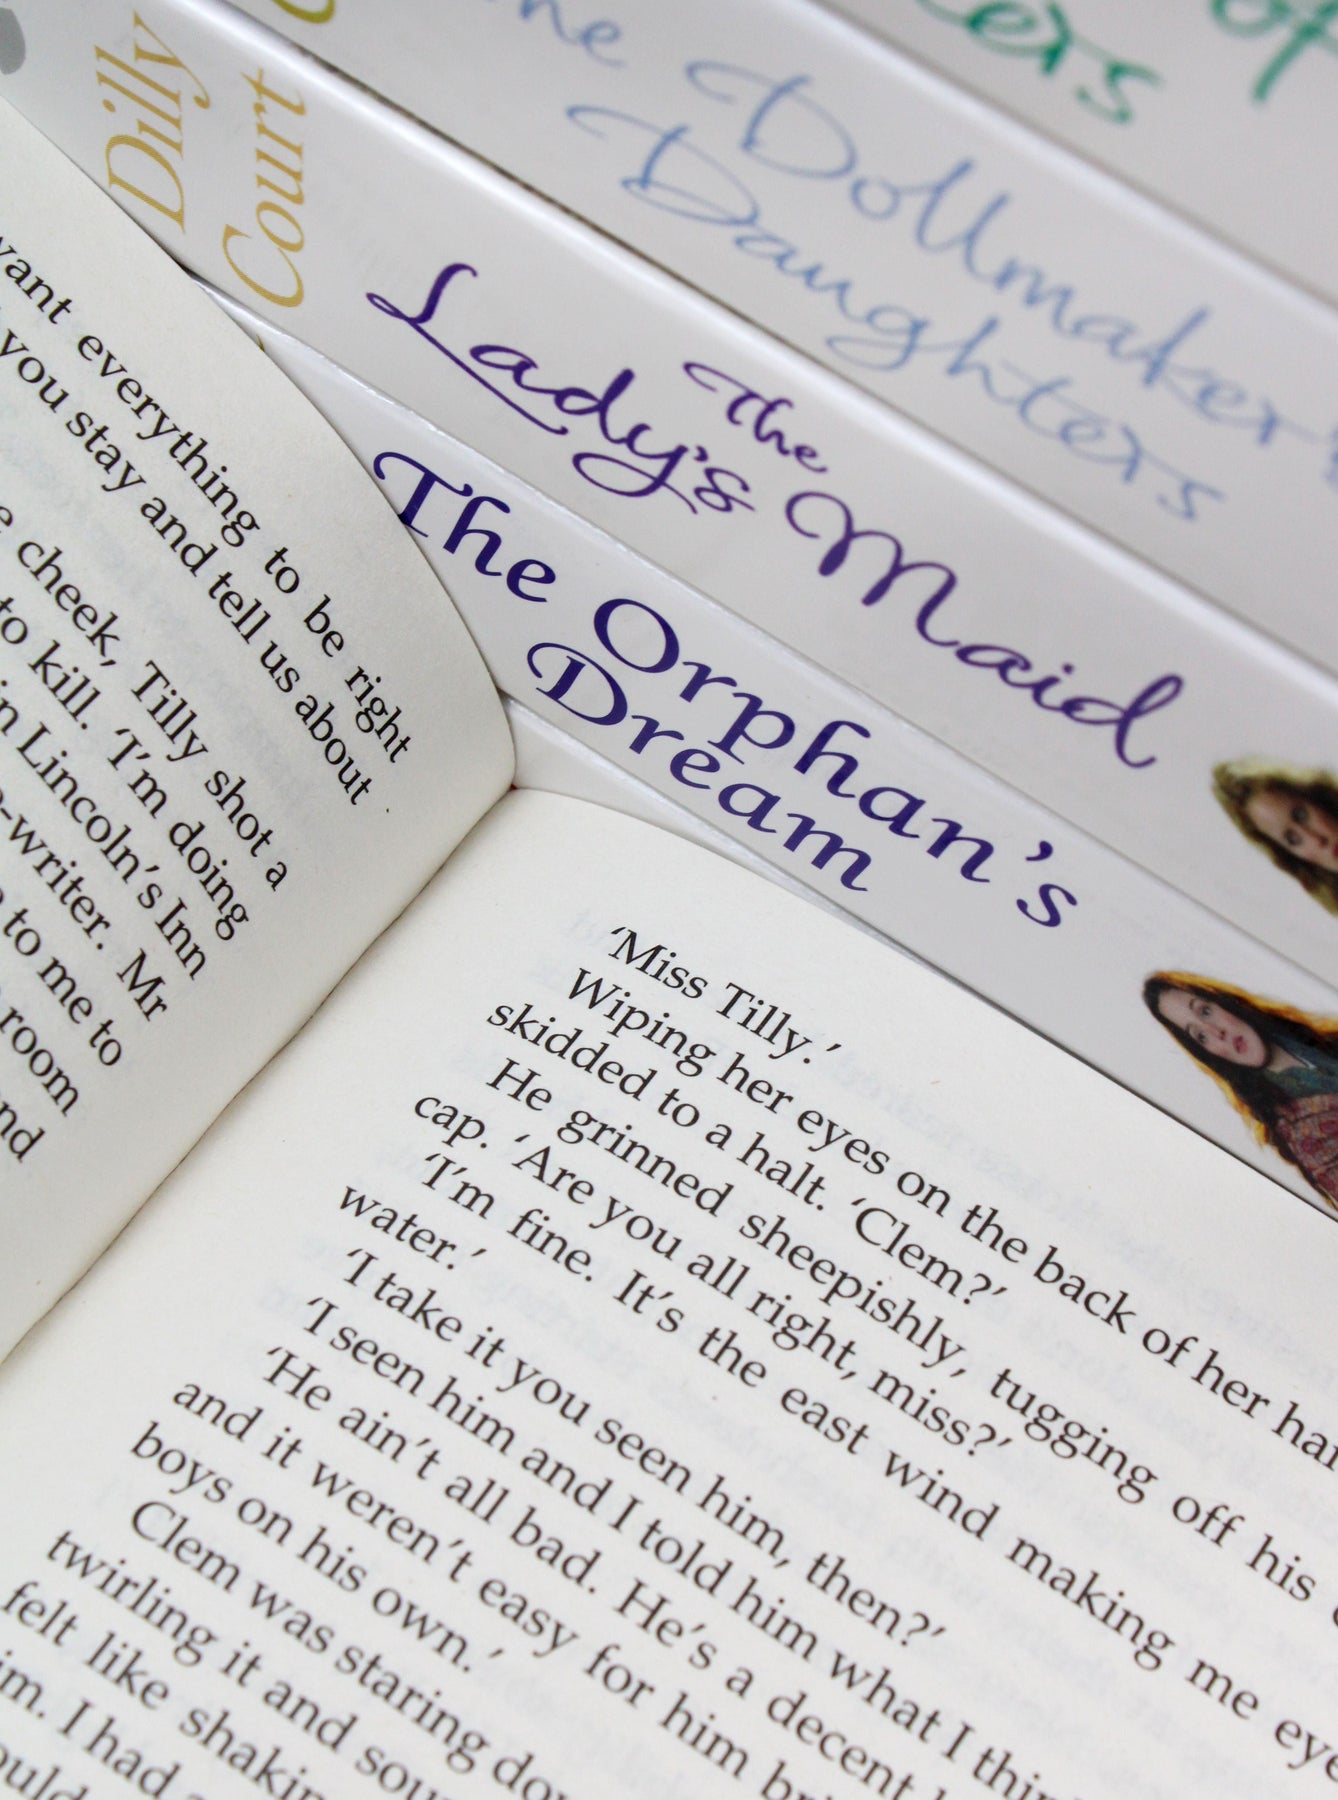 of
Dilly
Court
Dollmaker's
Daughters
The
Lady's Maid
The Orphan's
Dream
want everything to be right
you stay and tell us about
cheek, Tilly shot a
to kill. 'I'm doing
in Lincoln's Inn
-writer. Mr
to me to
room
'Miss Tilly.'
Wiping her eyes on the back of her
skidded to a halt. 'Clem?'
He grinned sheepishly, tugging off his
cap. 'Are you all right, miss?'
'I'm fine. It's the east wind making me
water.'
'I take it you seen him, then?'
'I seen him and I told him what I
'He ain't all bad. He's a decent
and it weren't easy for him
boys on his own.'
Clem was staring
twirling it and
felt like
I had